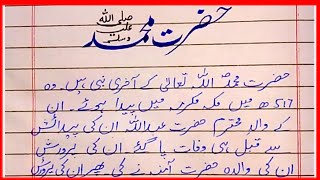 حضرت محمد صلی اللہ علیہ وسلم
حضرت محمدؐ اللہ تعالیٰ کے آخری نبی ہیں۔ وہ
571ھ میں مکہ مکرمہ میں پیدا ہوئے۔ ان
کے والد محترم حضرت عبداللہ ان کی پیدائش
سے قبل ہی وفات پا گئے۔ ان کی پرورش
ان کی والدہ حضرت آمنہ نے کی۔ پھر ان کی پرورش